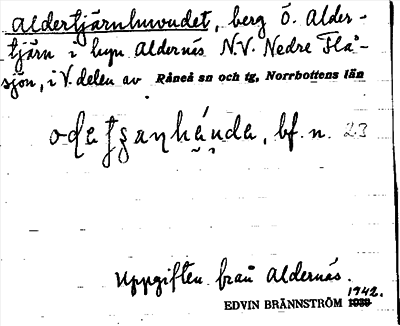 Aldertjärnhuvudet, berg Ö. Alder-
tjärn i byn Aldernäs N.V. Nedre Flå-
sjön, i V. delen av Råneå sn och tg, Norrbottens län
bf. n. 23
Uppgiften från Aldernäs.
1942.
EDVIN BRÄNNSTRÖM 1939